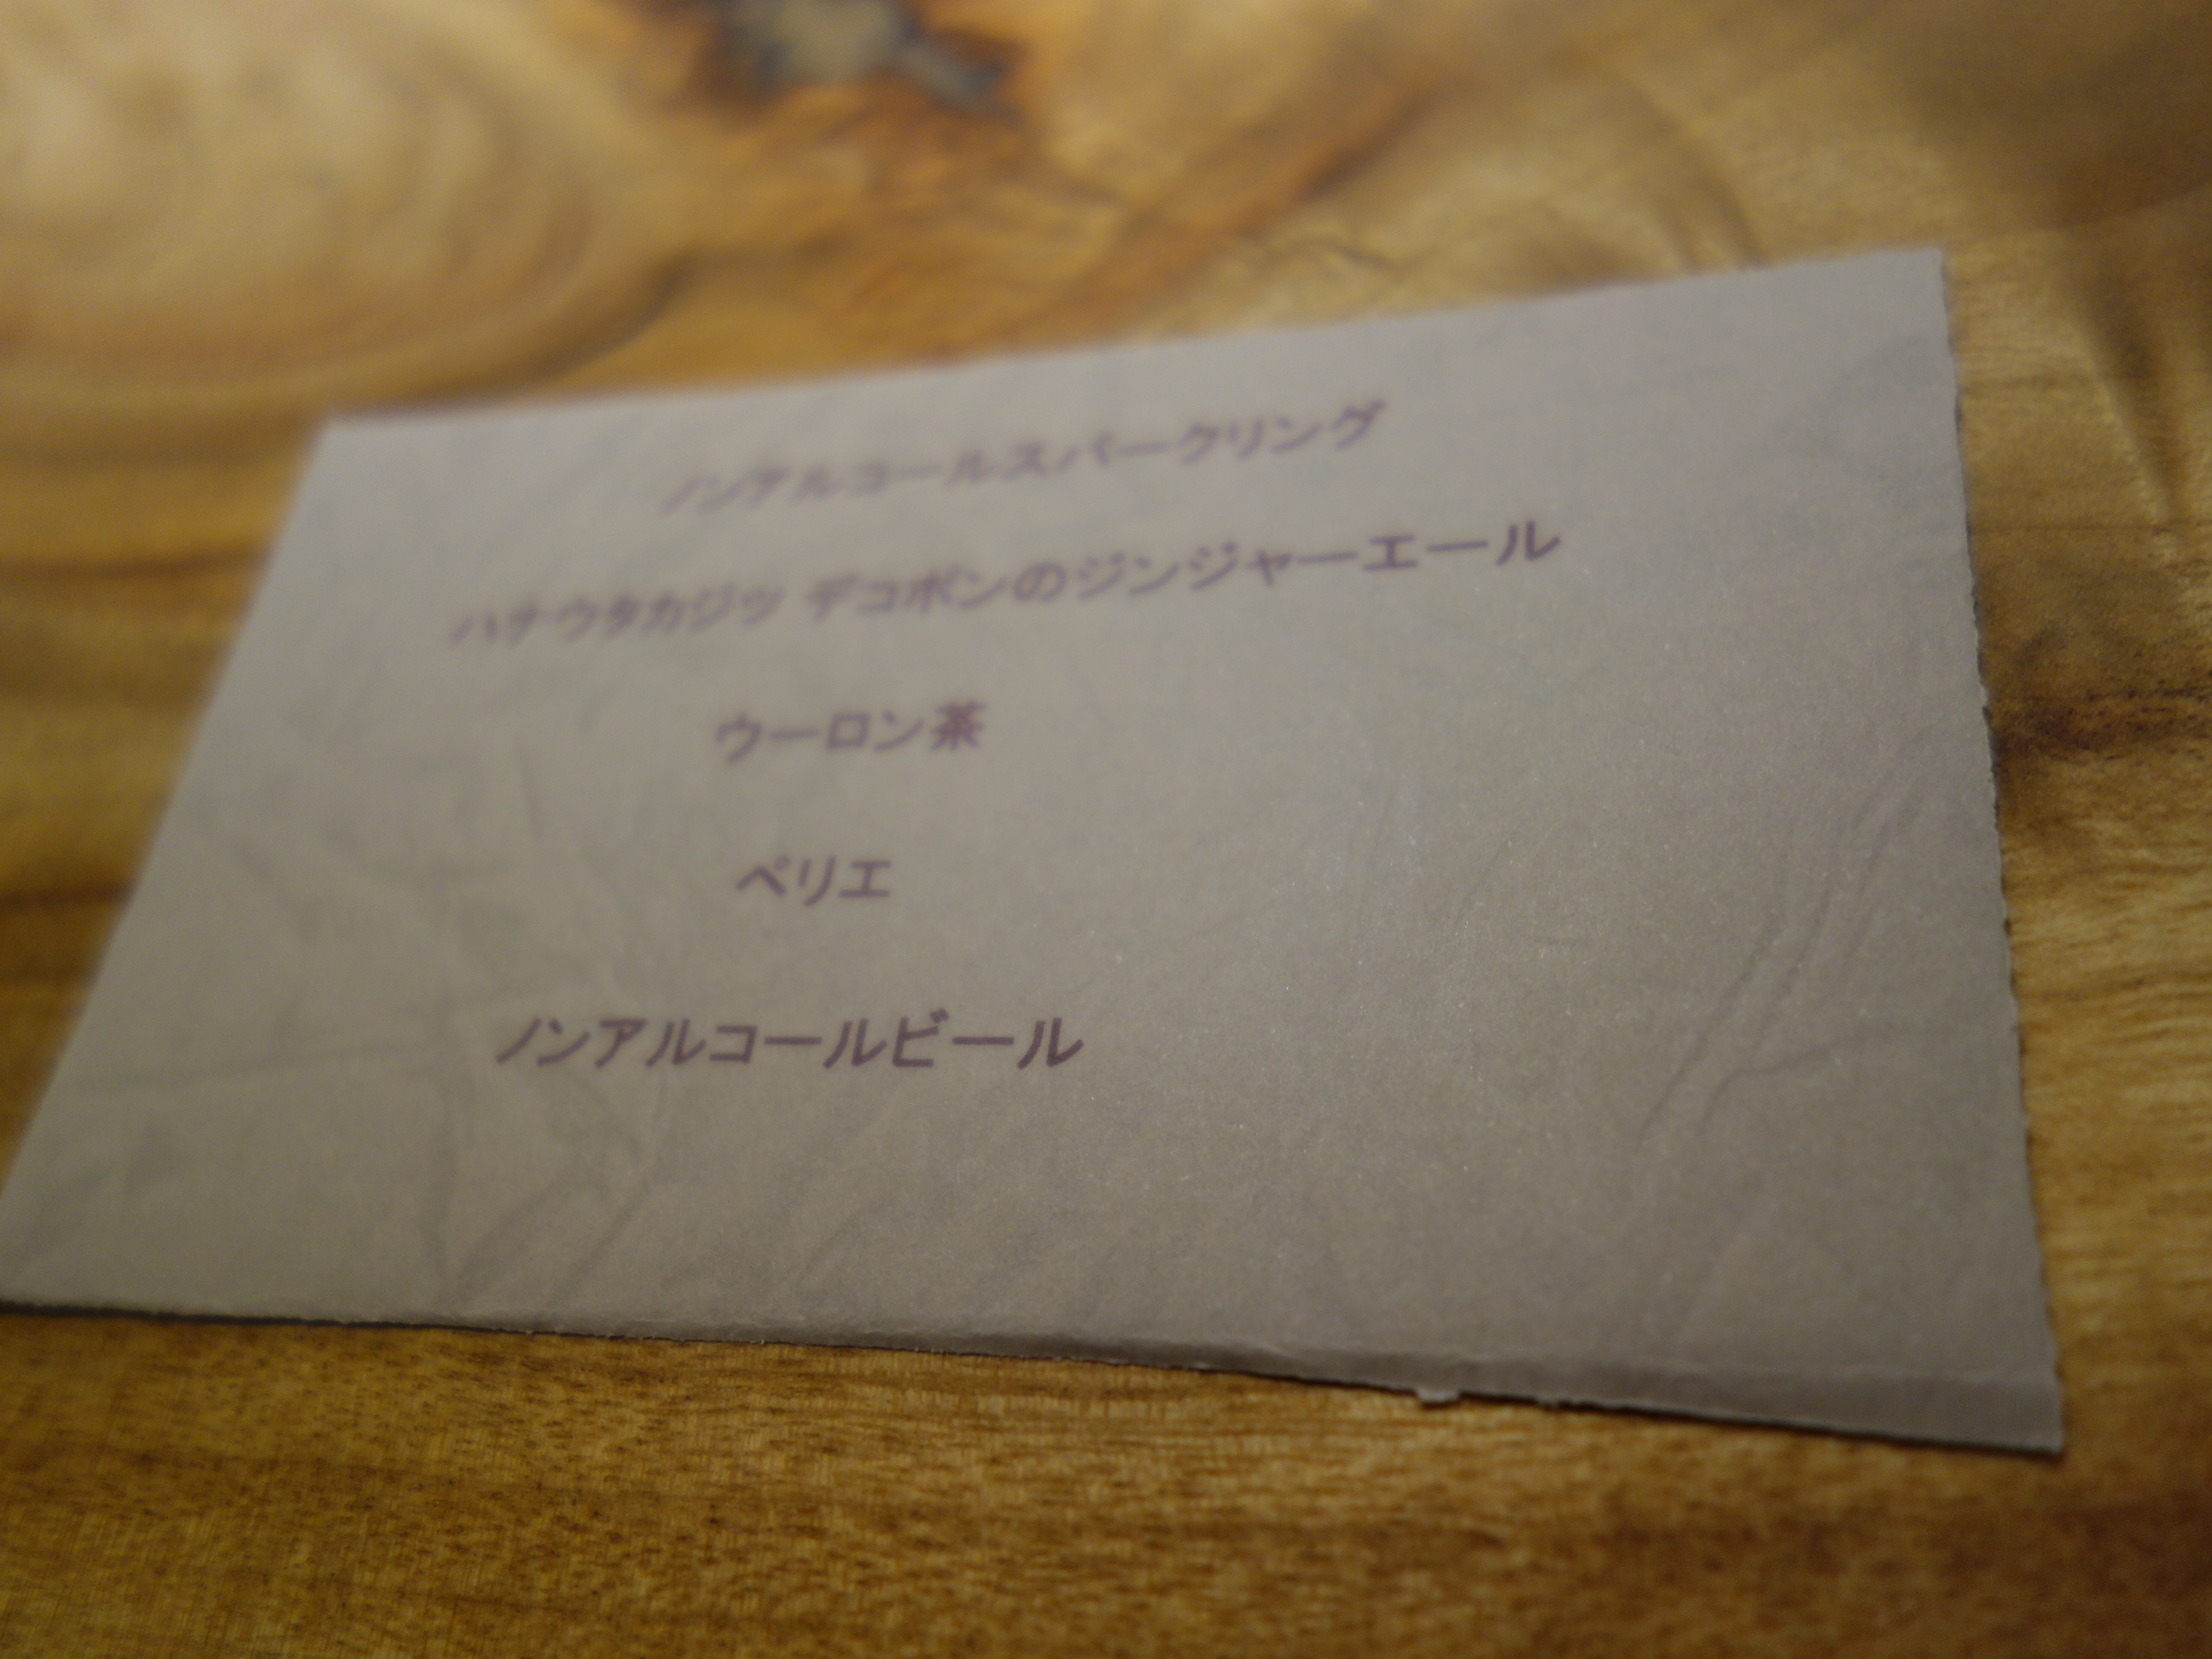 ノンアルコールスパークリング
ハナウタカジツ デコポンのジンジャーエール
ウーロン茶
ペリエ
ノンアルコールビール